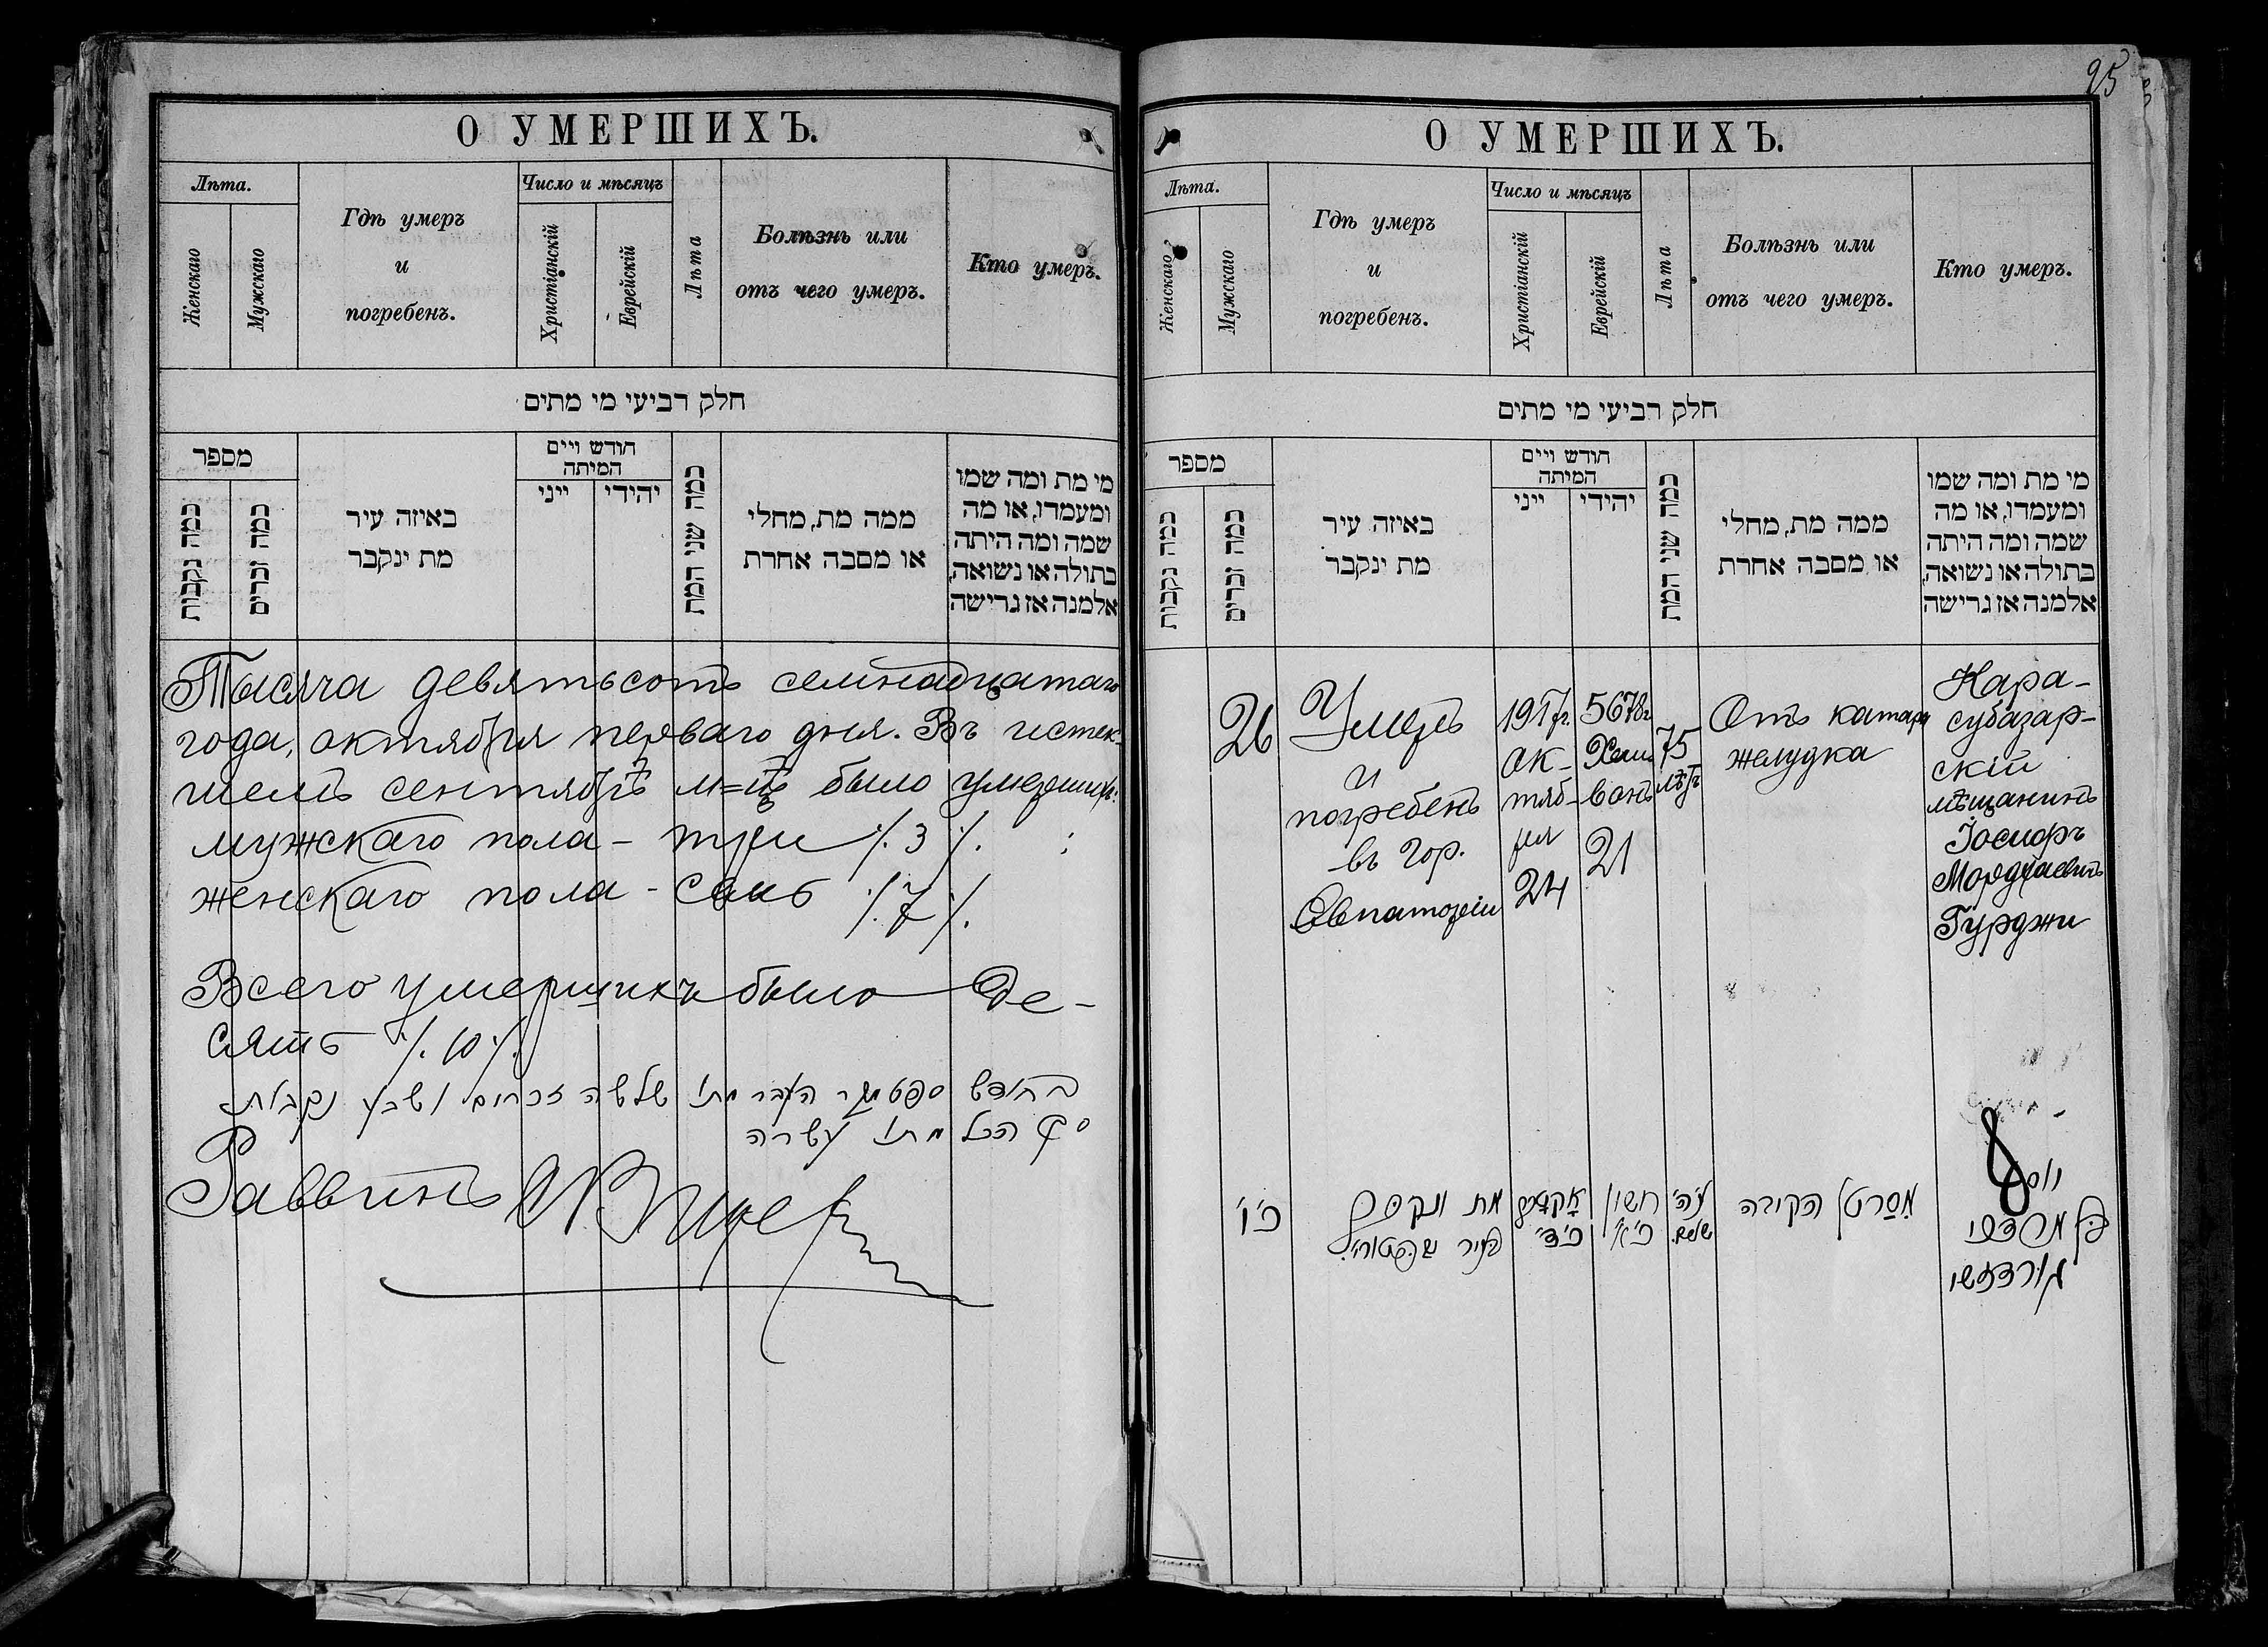 О УМЕРШИХЪ.
Лѣта.
Женскаго
Мужскаго
Гдѣ умеръ
и
погребенъ.
Число и мѣсяцъ
Христіанскій
Еврейскій
Лѣта
Болѣзнь или
отъ чего умеръ.
Кто умеръ.
חלק רביעי מי מתים
מספר
כמה נקבות
כמה זכרים
באיזה עיר
מת ינקבר
חודש ויים
המיתה
ייני
יהידי
כמה שני המת
ממה מת, מחלי
או מסבה אחרת
מי מת ומה שמו
ומעמדו, או מה
שמה ומה היתה
בתולה או נשואה,
אלמנה אז גרישה
Тысяча девятьсотъ семнадцатаго
года, октября перваго дня. Въ истек-
шемъ сентябрѣ м=цѣ было умершихъ:
мужскаго пола - три ∕. 3 ∕.
женскаго пола - семь ∕. 7 ∕.
Всего умершихъ было де-
сять ∕. 10 ∕.
בחודש ספטמבר העבר מתו שלשה זכרים ושבע נקבות
סך הכל מתו עשרה
Раввинъ
25
О УМЕРШИХЪ.
Лѣта.
Женскаго
Мужскаго
Гдѣ умеръ
и
погребенъ.
Число и мѣсяцъ
Христіанскій
Еврейскій
Лѣта
Болѣзнь или
отъ чего умеръ.
Кто умеръ.
חלק רביעי מי מתים
מספר
כמה נקבות
כמה זכרים
באיזה עיר
מת ינקבר
חודש ויים
המיתה
ייני
יהידי
כמה שני המת
ממה מת, מחלי
או מסבה אחרת
מי מת ומה שמו
ומעמדו, או מה
שמה ומה היתה
בתולה או נשואה,
אלמנה אז גרישה
26
Умеръ
и
погребенъ
въ гор.
Евпаторіи
1917г.
ок-
тяб-
ря
24
5678г
Хеш-
вонъ
21
75
лѣтъ
Отъ катара
желудка
Кара-
субазар-
скій
мѣщанинъ
Іосифъ
Мордхаевичъ
Гурджи
כ'ו'
מת ונקבר
בעיר
כ'ד'
חשון
כ'א'
ע'ה'
מסרטן הקיבה
יוסף
בן מרדכי
גורדזשי